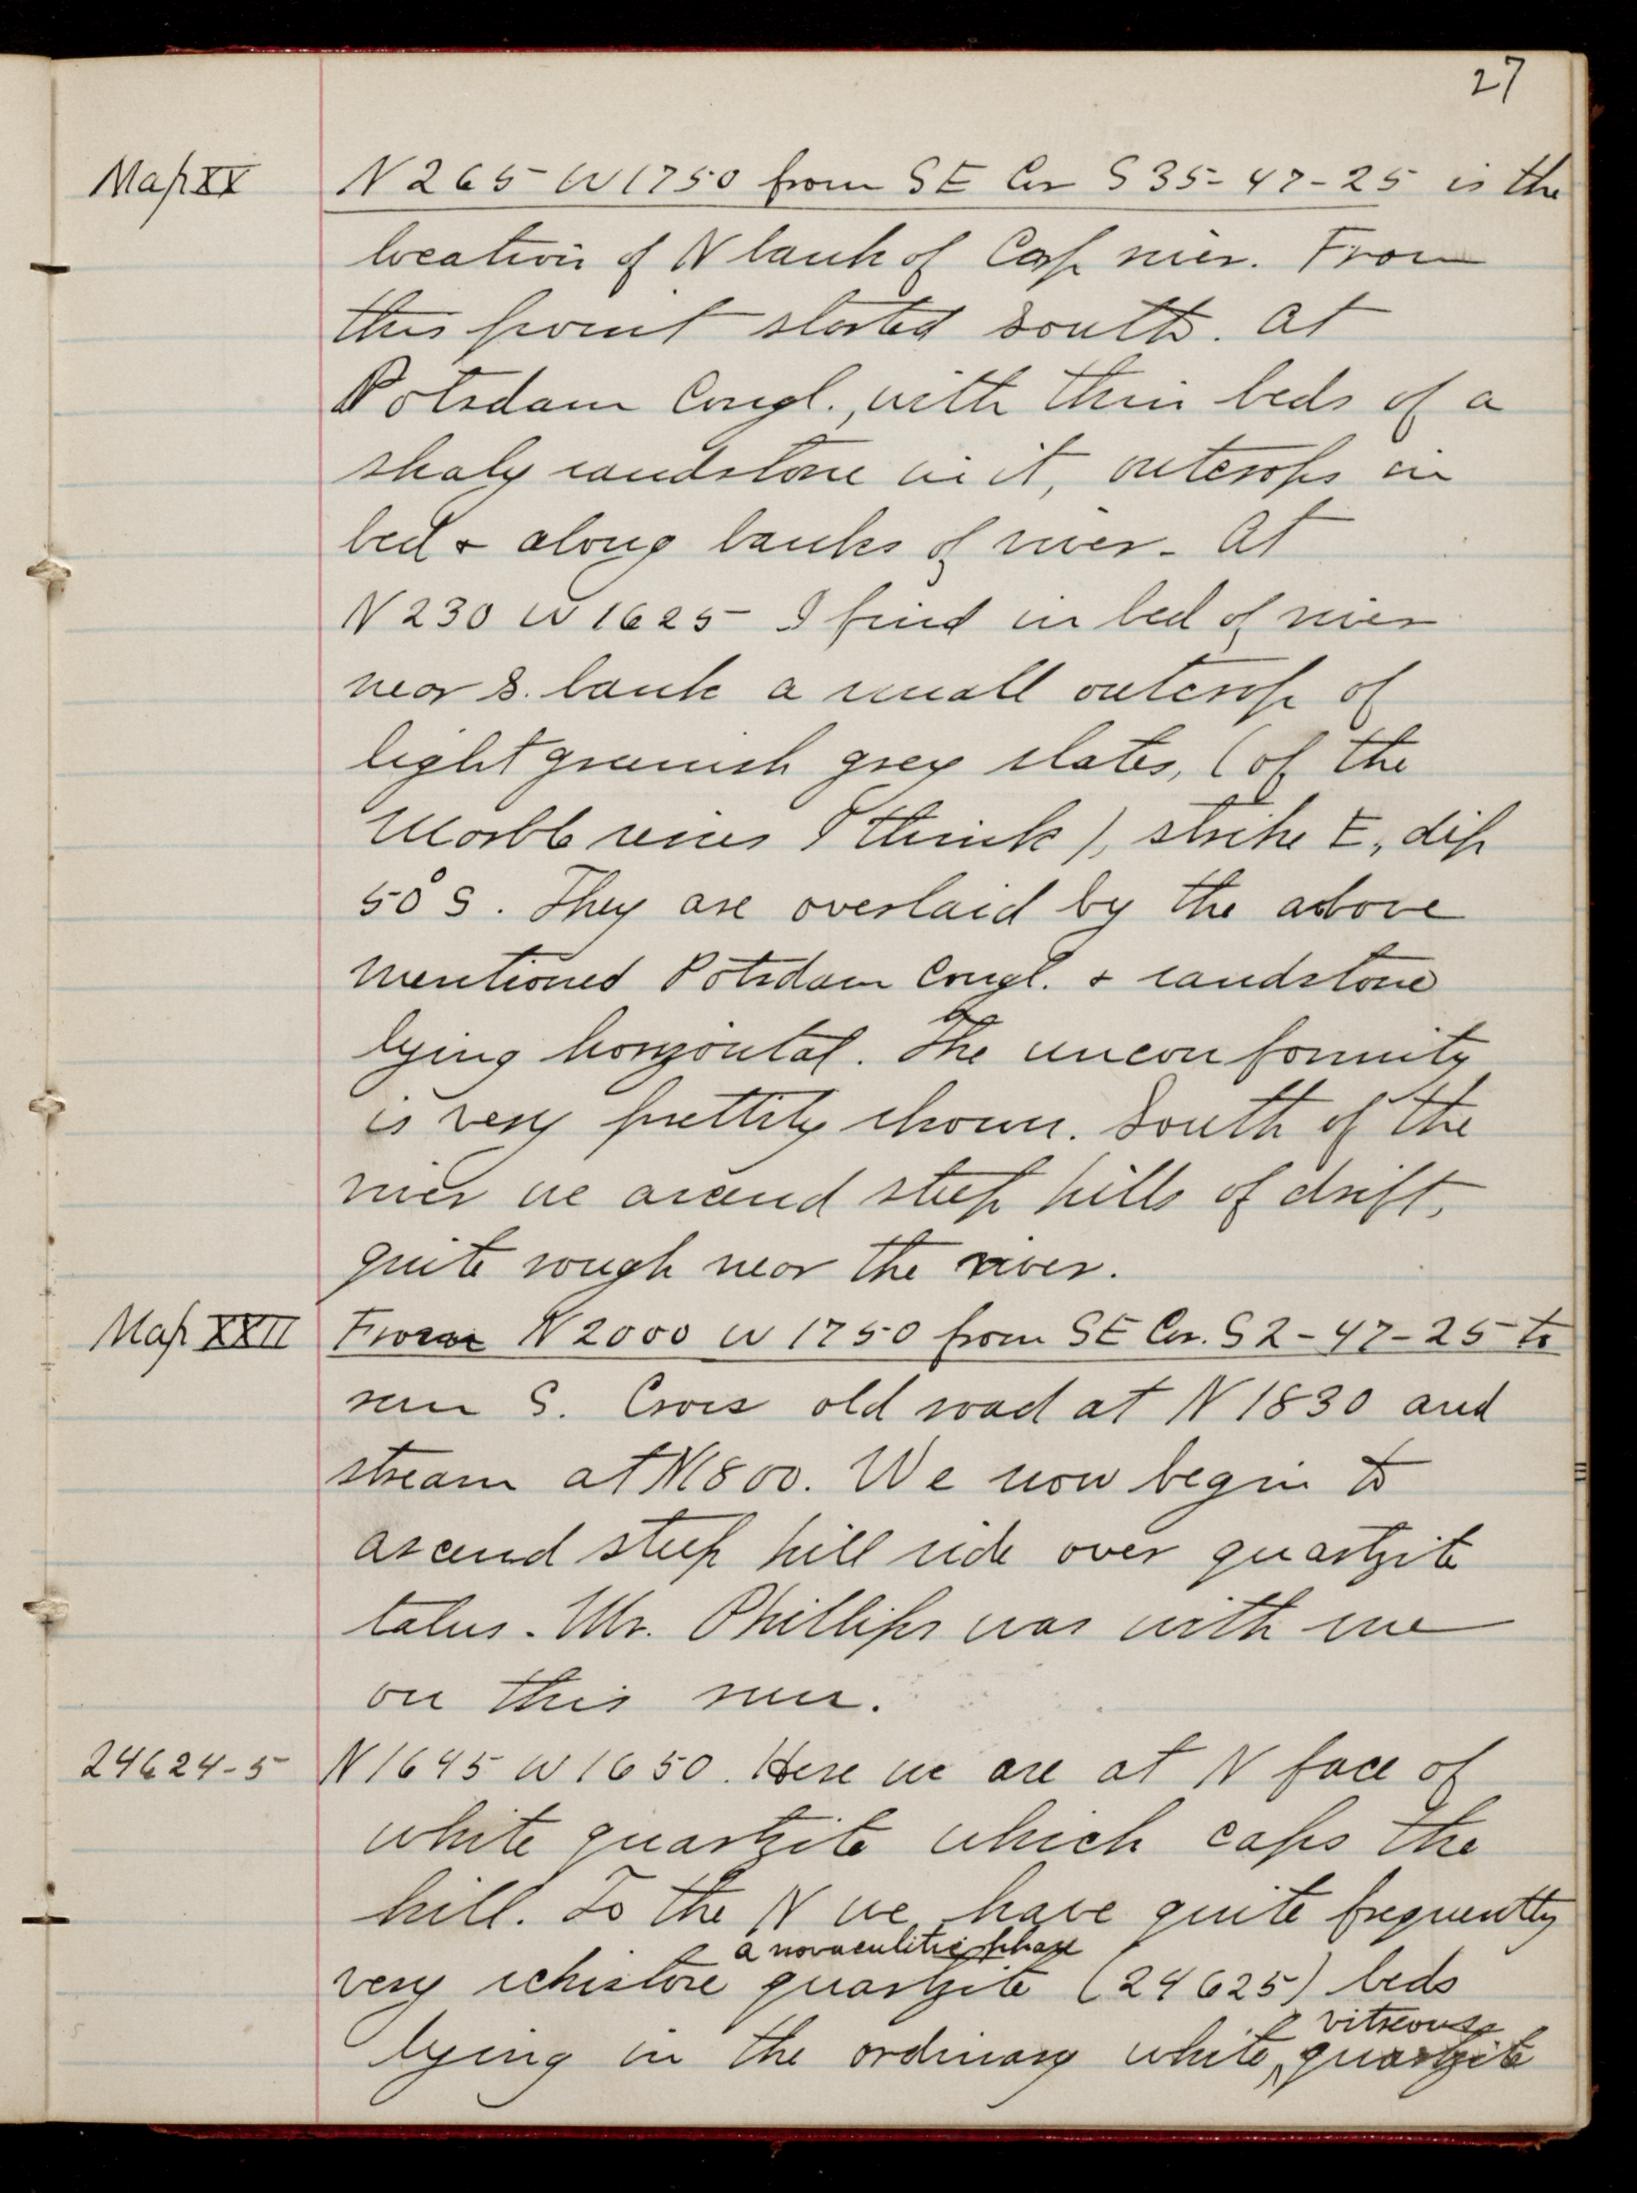 27
Map XX N 265 W 1750 from SE Cor S 35-47-25 is the
location of N bank of Carp river. From
this point started south. At
Potsdam Congl., with thin beds of a
shaly sandstone in it, outcrops in
bed & along banks of river. At
N 230 W 1625 I find in bed of river
near S. bank a small outcrop of
light greenish grey slates, (of the
Marble series I think), strike E, dip
50° S. They are overlaid by the above
mentioned Potsdam Congl. & sandstone
lying horizontal. The unconformity
is very prettily shown. South of the
river we ascend steep hills of drift,
quite rough near the river.
Map XXII From N 2000 W 1750 from SE Cor. S 2-47-25 to
run S. Cross old road at N 1830 and
stream at N1800. We now begin to
ascend steep hill side over quartzite
talus. Mr. Phillips was with me
on this run.
24624-5 N 1645 W 1650. Here we are at N face of
white quartzite which caps the
hill. To the N we have quite frequently
a novaculitic phase
very schistose quartzite (24625) beds
vitreous
lying in the ordinary white quartzite